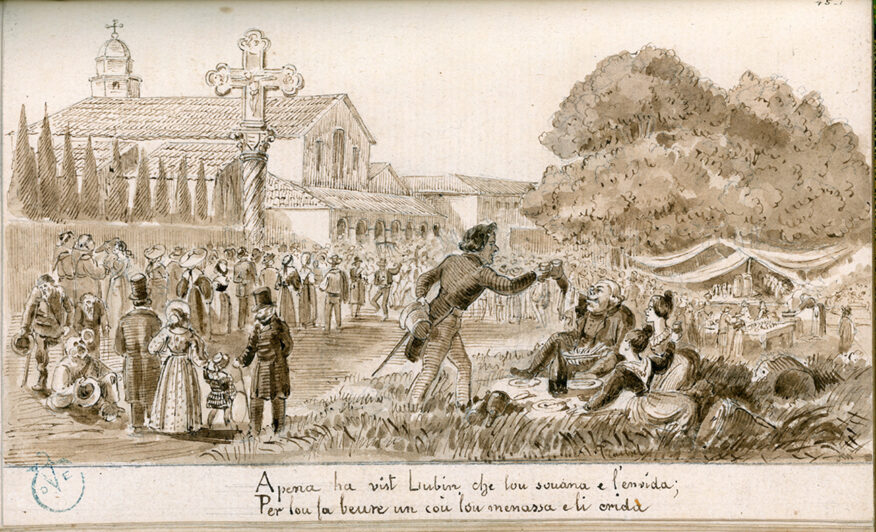 Apena ha vist Lubin che lou souàna e l'envida;
Per lou fa beure un coù lou menassa e li crida